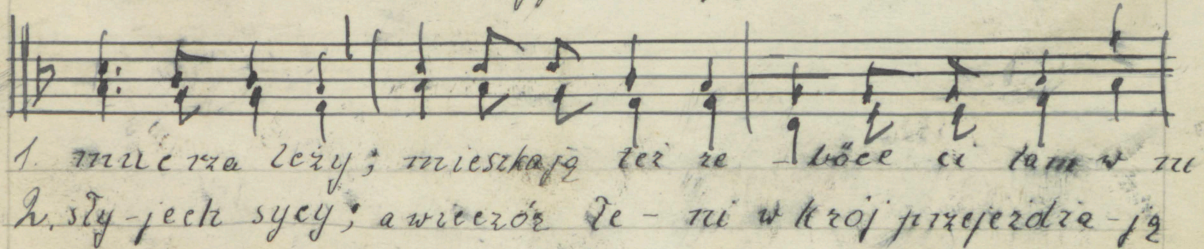 1. mucerza leży; mieszkają też re - böce ci tam w ni
2. sły-jech sycy; a wieczór łe - ni w krój przejezdza-ją